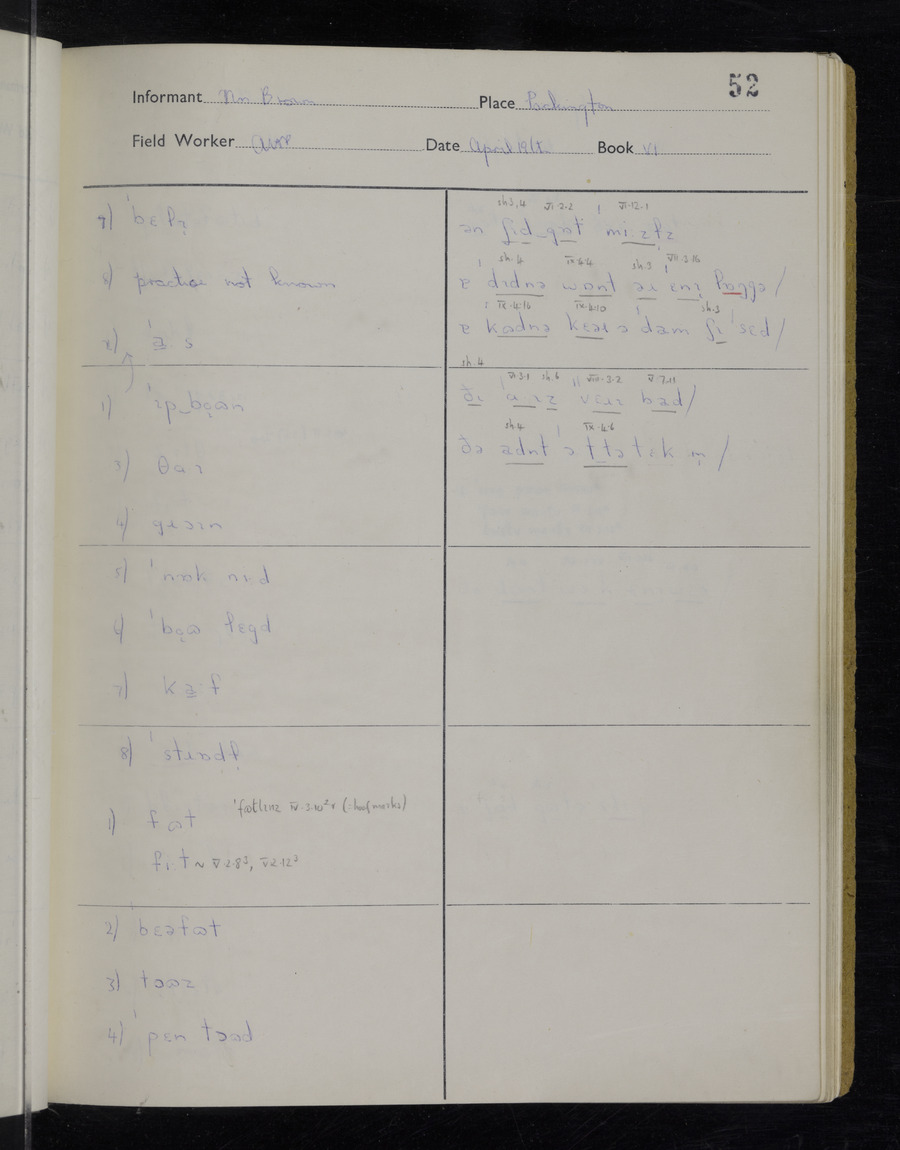 52
Informant Mrs Brown Place Puckington
Field Worker AWP Date April 19th Book VI
9) ˈbɛlɪ
8) practice not known
2) a̱ s
1) ˈɪp_bǫən
3) θaɪ
4) gɹɔɪn
5) ˈnɒk nɪd
6) ˈbǫə legd
7) k a̱ f
8) ˈstɹadl̩
1) f ɷt ˈfɷtlɪnz IV·3·10² r (= hoofmarks)
fi.t ~ V·2·8³, V·2·12³
2) ˈbɛəfɷt
3) tɔəz
4) ˈpɛn tɔəd
sh3,4 VI·2·2 VI·12·1
ən ʃid_gɒt mi:zlz
sh.4 IX·4·4 sh.3 VII·3·16
ɐ dɪdnə wɒnt əɪ ɛnɪ lɒŋgə /
IX·4·16 IX·4·10 sh.3
ɐ kɒdnə kɛəɹ ə ˈdæm ʃɪ ˈsɛd /
sh.4
VI·3·1 sh.6 VIII·3·2 V·7·11
ðɪ a_ɪz vɛɹɪ bæd /
sh.4 IX·4·6
ðə adnt ˈəttə tɛk m̩ /